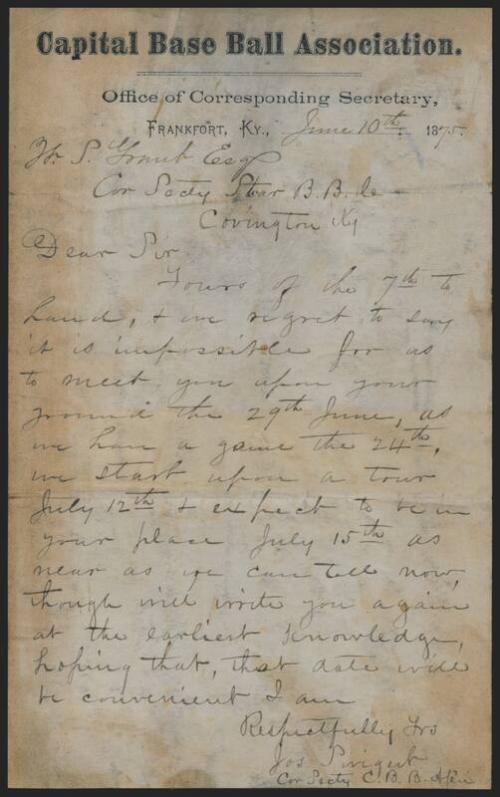 Capital Base Ball Association.
Office of Corresponding Secretary,
FRANKFORT, KY., June 10th 1875.
S. Grant Esq
Cor Secty Star B. B. C
Covington Ky
Dear Sir
Yours of the 7th to
hand, & we regret to say
it is impossible for us
to meet you upon your
ground the 29th June, as
we have a game the 24th,
we start upon a tour
July 12th & expect to be in
your place July 15th as
near as we can tell now,
though will write you again
at the earliest knowledge,
hoping that, that date will
be convenient I am
Respectfully Yrs
Jos
Cor Secty C. B. B. Assn